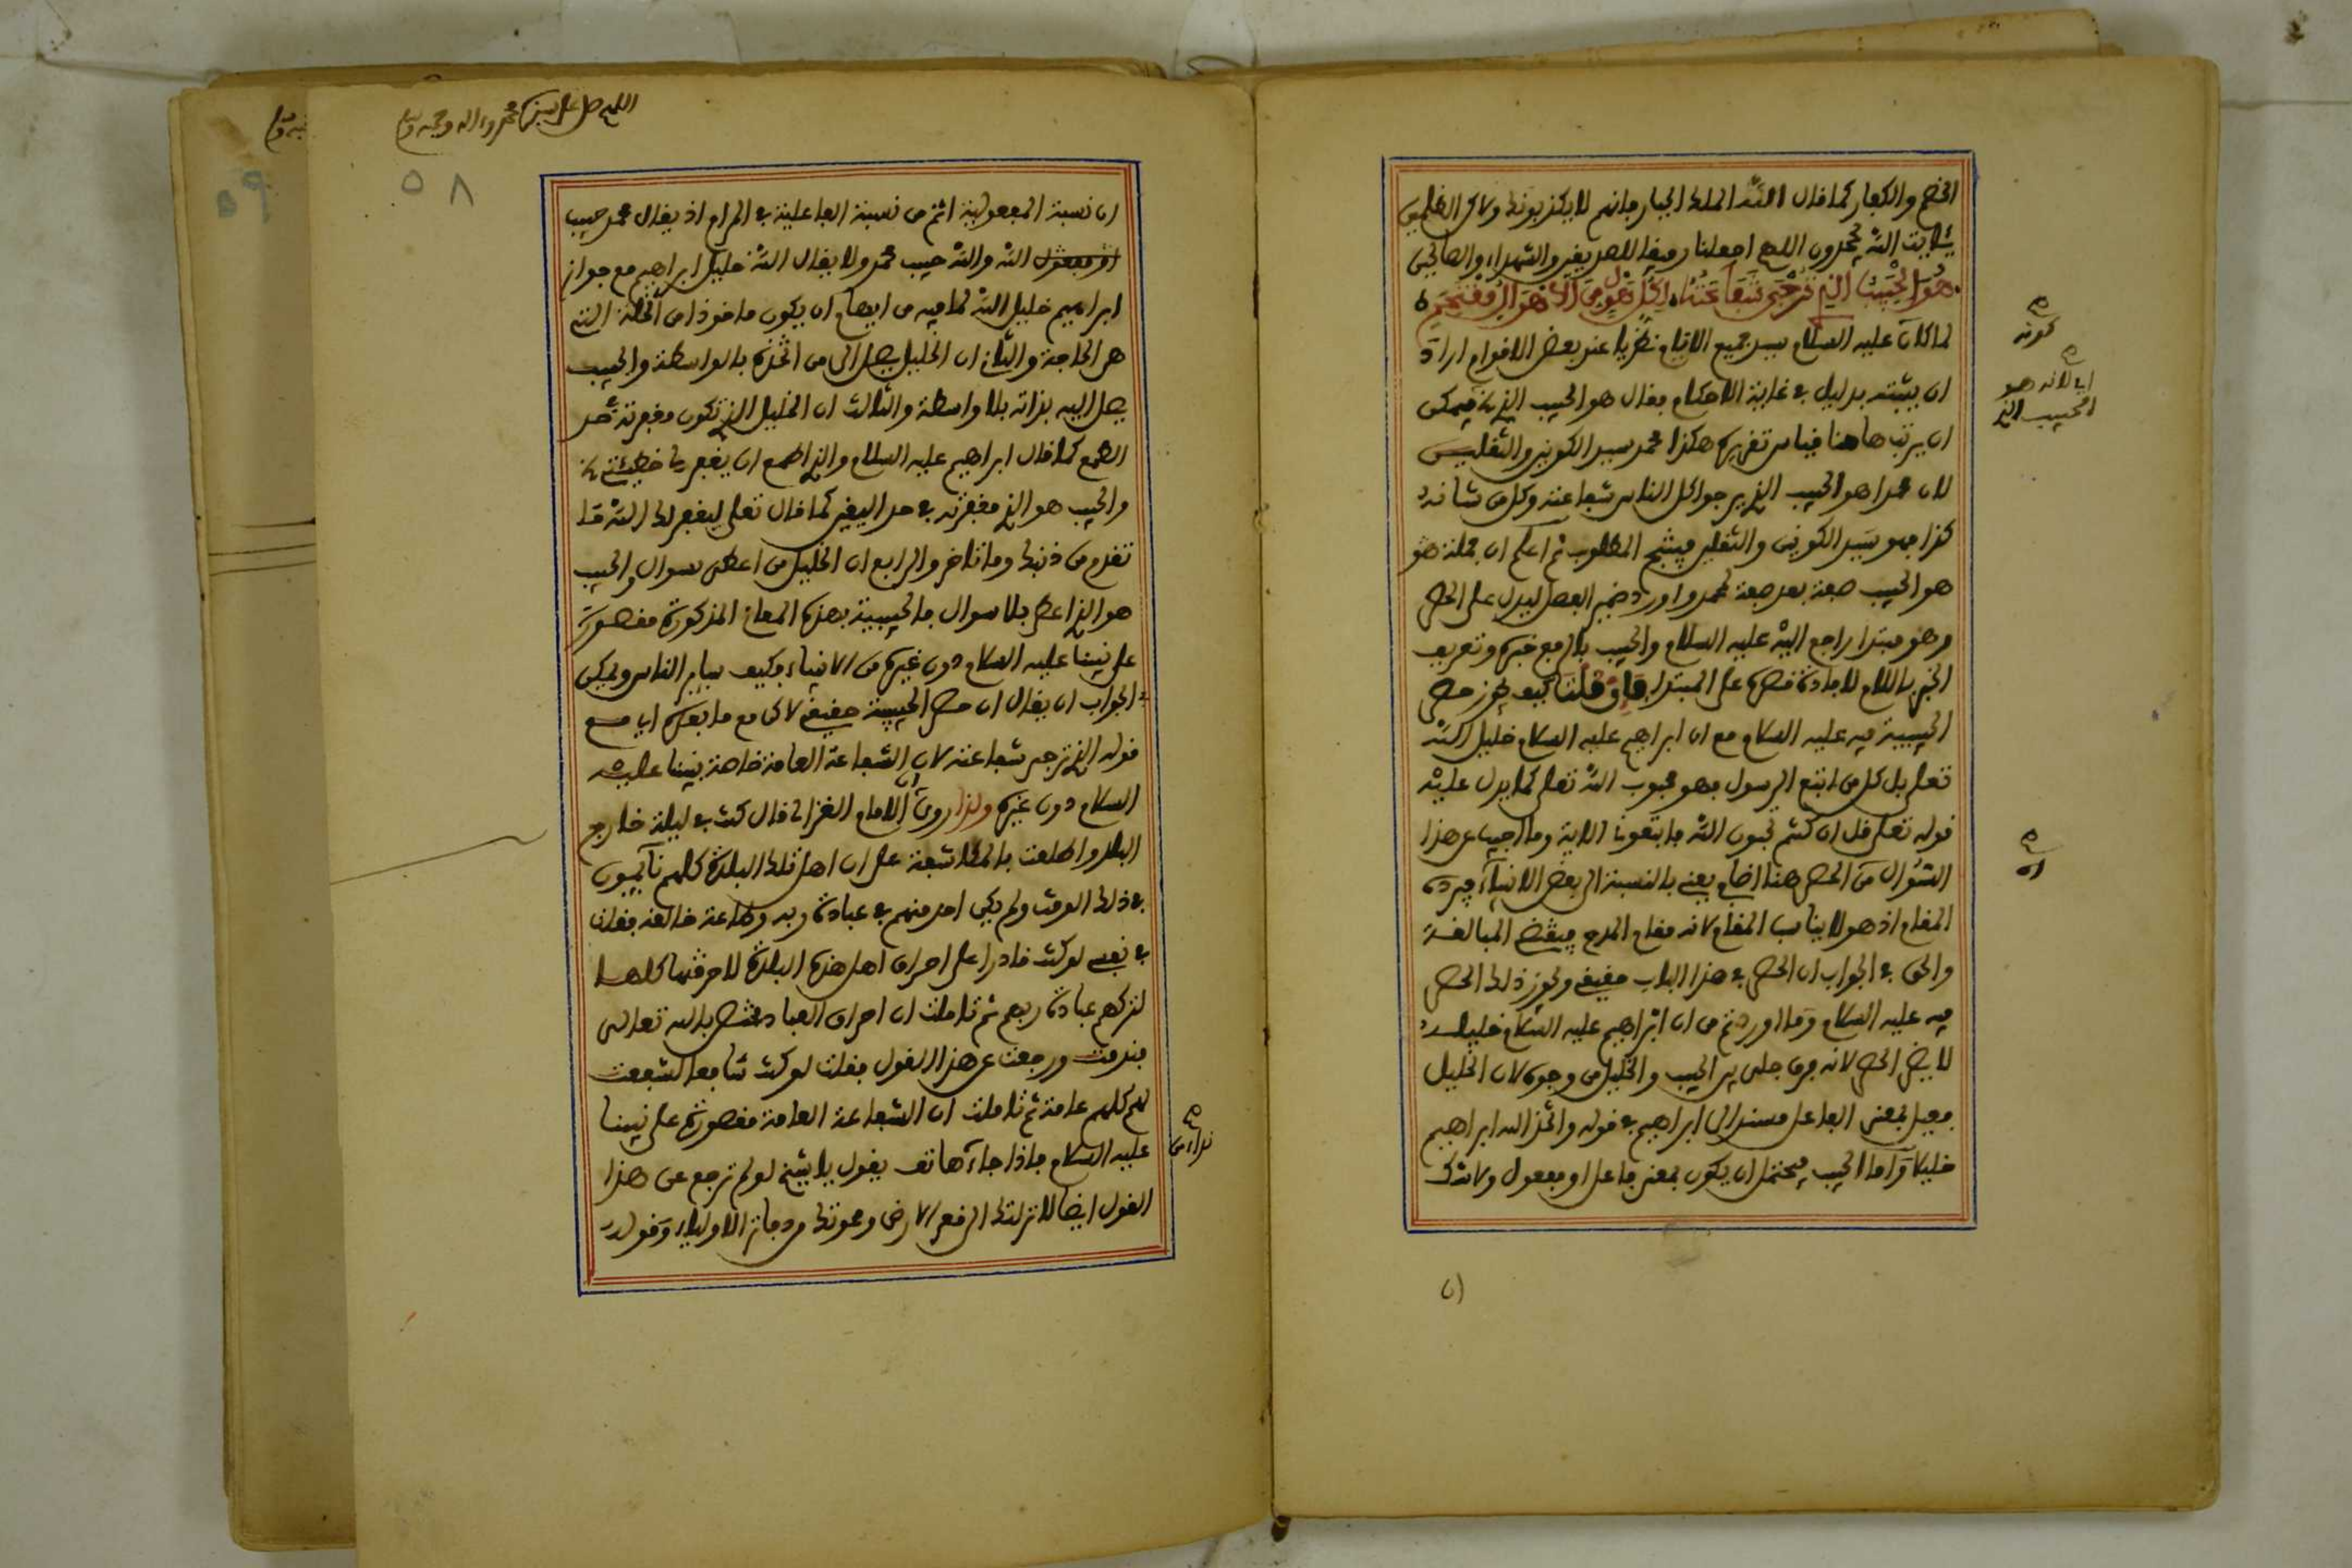 الخصم والكفار كما قال الله الملك الجبار فانهم لا يكذبونك ولاكن الظلمين
بئايت الله يجحدون اللهم اجعلنا رفيقا للصديقين والشهداء والصالحين
هُوَ الْحَبِيبُ الذِي تُرْجَى شَفَاعَتُهُ لِكُلِّ هَوْلٍ مِنَ الاهْوَالِ مُقْتَحَمِ
لما كان عليه السلام سيد جميع الانام نظريا عند بعض الاقوام اراد
ان يثبته بدليل في غاية الاحكام فقال هو الحبيب الذي فيمكن
ان يرتب هاهنا قياس تقريره هكذا محمد سيد الكونين والثقلين
لان محمدا هو الحبيب الذي يرجوا كل الناس شفاعته وكل من شانه
كذا فهو سيد الكونين والثقلين فينتج المطلوب ثم اعلم ان جملة هو
هو الحبيب صفة بعد صفة لمحمد واورد ضمير الفصل ليدل على الحصر
وهو مبتدا راجع اليه عليه السلام والحبيب بالرفع خبره وتعريف
الخبر باللام لافادة قصره على المبتدا فان قلت كيف يجوز حصر
الحبيبية فيه عليه السلام مع ان ابراهيم عليه السلام خليل الله
تعلى بل كل من اتبع الرسول فهو محبوب الله تعلى كما يدل عليه
قوله تعلى قل ان كنتم تحبون الله فاتبعوني الاية وما اجيب عن هذا
السُؤال من الحصر هنا اضافي يعني بالنسبة الى بعض الانبياء فيرده
المقام اذ هو لا يناسب المقام لانه مقام المدح فيقتضي المبالغة
والحق في الجواب ان الحصر في هذا الباب حقيقي ويجوز ذلك الحصر
فيه عليه السلام وما اوردتم من ان ابراهيم عليه السلام خليله
لا يضر الحصر لانه فرق جلي بين الحبيب والخليل من وجوه لان الخليل
فعيل بمعنى الفاعل مسند الى ابراهيم في قوله واتخذ الله ابراهيم
خليلا وَاما الحبيب فيحتمل ان يكون بمعنى فاعل او مفعول ولا شك
كونه
اي لانه هو
الحبيب الذي
ان
ان
اللهم صل على سيدنا محمد وءاله وصحبه وسلم
٥٨
٥٩
ان نسبة المفعولية اتم من نسبة الفاعلية في المرام اذ يقال محمد حبيب
او مفعول الله والله حبيب محمد ولا يقال الله خليل ابراهيم مع جواز
ابراهيم خليل الله لما فيه من ايهام ان يكون ماخوذا من الخلة التي
هي الحاجة والثاني ان الخليل يصل الى من اتخذه بالواسطة والحبيب
يصل اليه بذاته بلا واسطة والثالث ان الخليل الذي تكون مغفرته في حد
الطمع كما قال ابراهيم عليه السلام والذي اطمع ان يغفر لي خطيئتي
والحبيب هو الذي مغفرته في حد اليقين كما قال تعلى ليغفر لك الله ما
تقدم من ذنبك وما تاخر والرابع ان الخليل من اعطى بسوال والحبيب
هو الذي اعطى بلا سوال فالحبيبية بهذه المعاني المذكورة مقصورة
على نبينا عليه السلام دون غيره من الانبياء فكيف سائر الناس ويمكن
في الجواب ان يقال ان حصر الحبيبية حقيقي لاكن مع ما بعده اي مع
قوله الذي ترجى شفاعته لان الشفاعة العامة خاصة بنبينا عليه
السلام دون غيره ولذا روي ان الامام الغزالي قال كنت في ليلة خارج
البلد واطلعت بالمكاشفة على ان اهل تلك البلدة كلهم نائمون
في ذلك الوقت ولم يكن احد منهم في عبادة ربه وطاعة خالقه فقلت
في نفسي لو كنت قادرا على احراق اهل هذه البلدة لاحرقتها كلها
لتركهم عبادة ربهم ثم تاملت ان احراق العباد مختص بالله تعالى
فندمت ورجعت عن هذا القول فقلت لو كنت شافعا لشفعت
لهم كلهم عامة ثم تاملت ان الشفاعة العامة مقصورة على نبينا
عليه السلام فاذا جاء هاتف يقول يا شيخ لو لم ترجع عن هذا
القول ايضا لانزلتك الى قعر الارض ومحوتك من دفاتر الاولياء وَقوله
نداء من